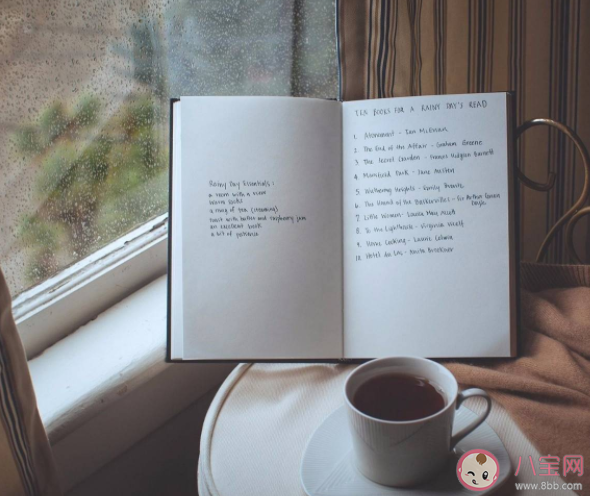 Rainy Day Essentials:
a room with a view
warm socks
a mug of tea (steaming)
toast with butter and raspberry jam
an excellent book
a bit of patience
TEN BOOKS FOR A RAINY DAY'S READ
1. Atonement - Ian McEwan
2. The End of the Affair - Graham Greene
3. The Secret Garden - Frances Hodgson Burnett
4. Mansfield Park - Jane Austen
5. Wuthering Heights - Emily Brontë
6. The Hound of the Baskervilles - Sir Arthur Conan
Doyle
7. Little Women - Louisa May Alcott
8. To the Lighthouse - Virginia Woolf
9. Home Cooking - Laurie Colwin
10. Hotel du Lac - Anita Brookner
八宝网
www.8bb.com